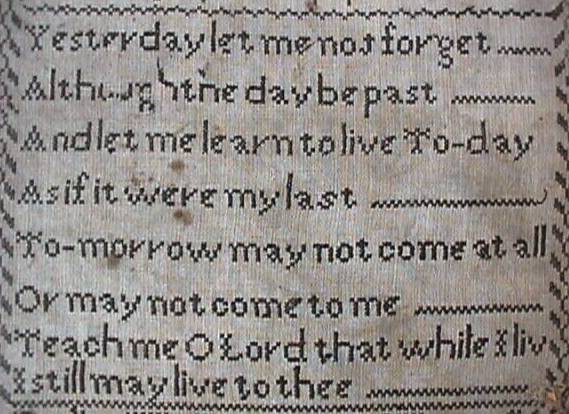 Yesterday let me not forget
Although the day be past
And let me learn to live To-day
As if it were my last
To-morrow may not come at all
Or may not come to me
Teach me O Lord that while I liv
I still may live to thee